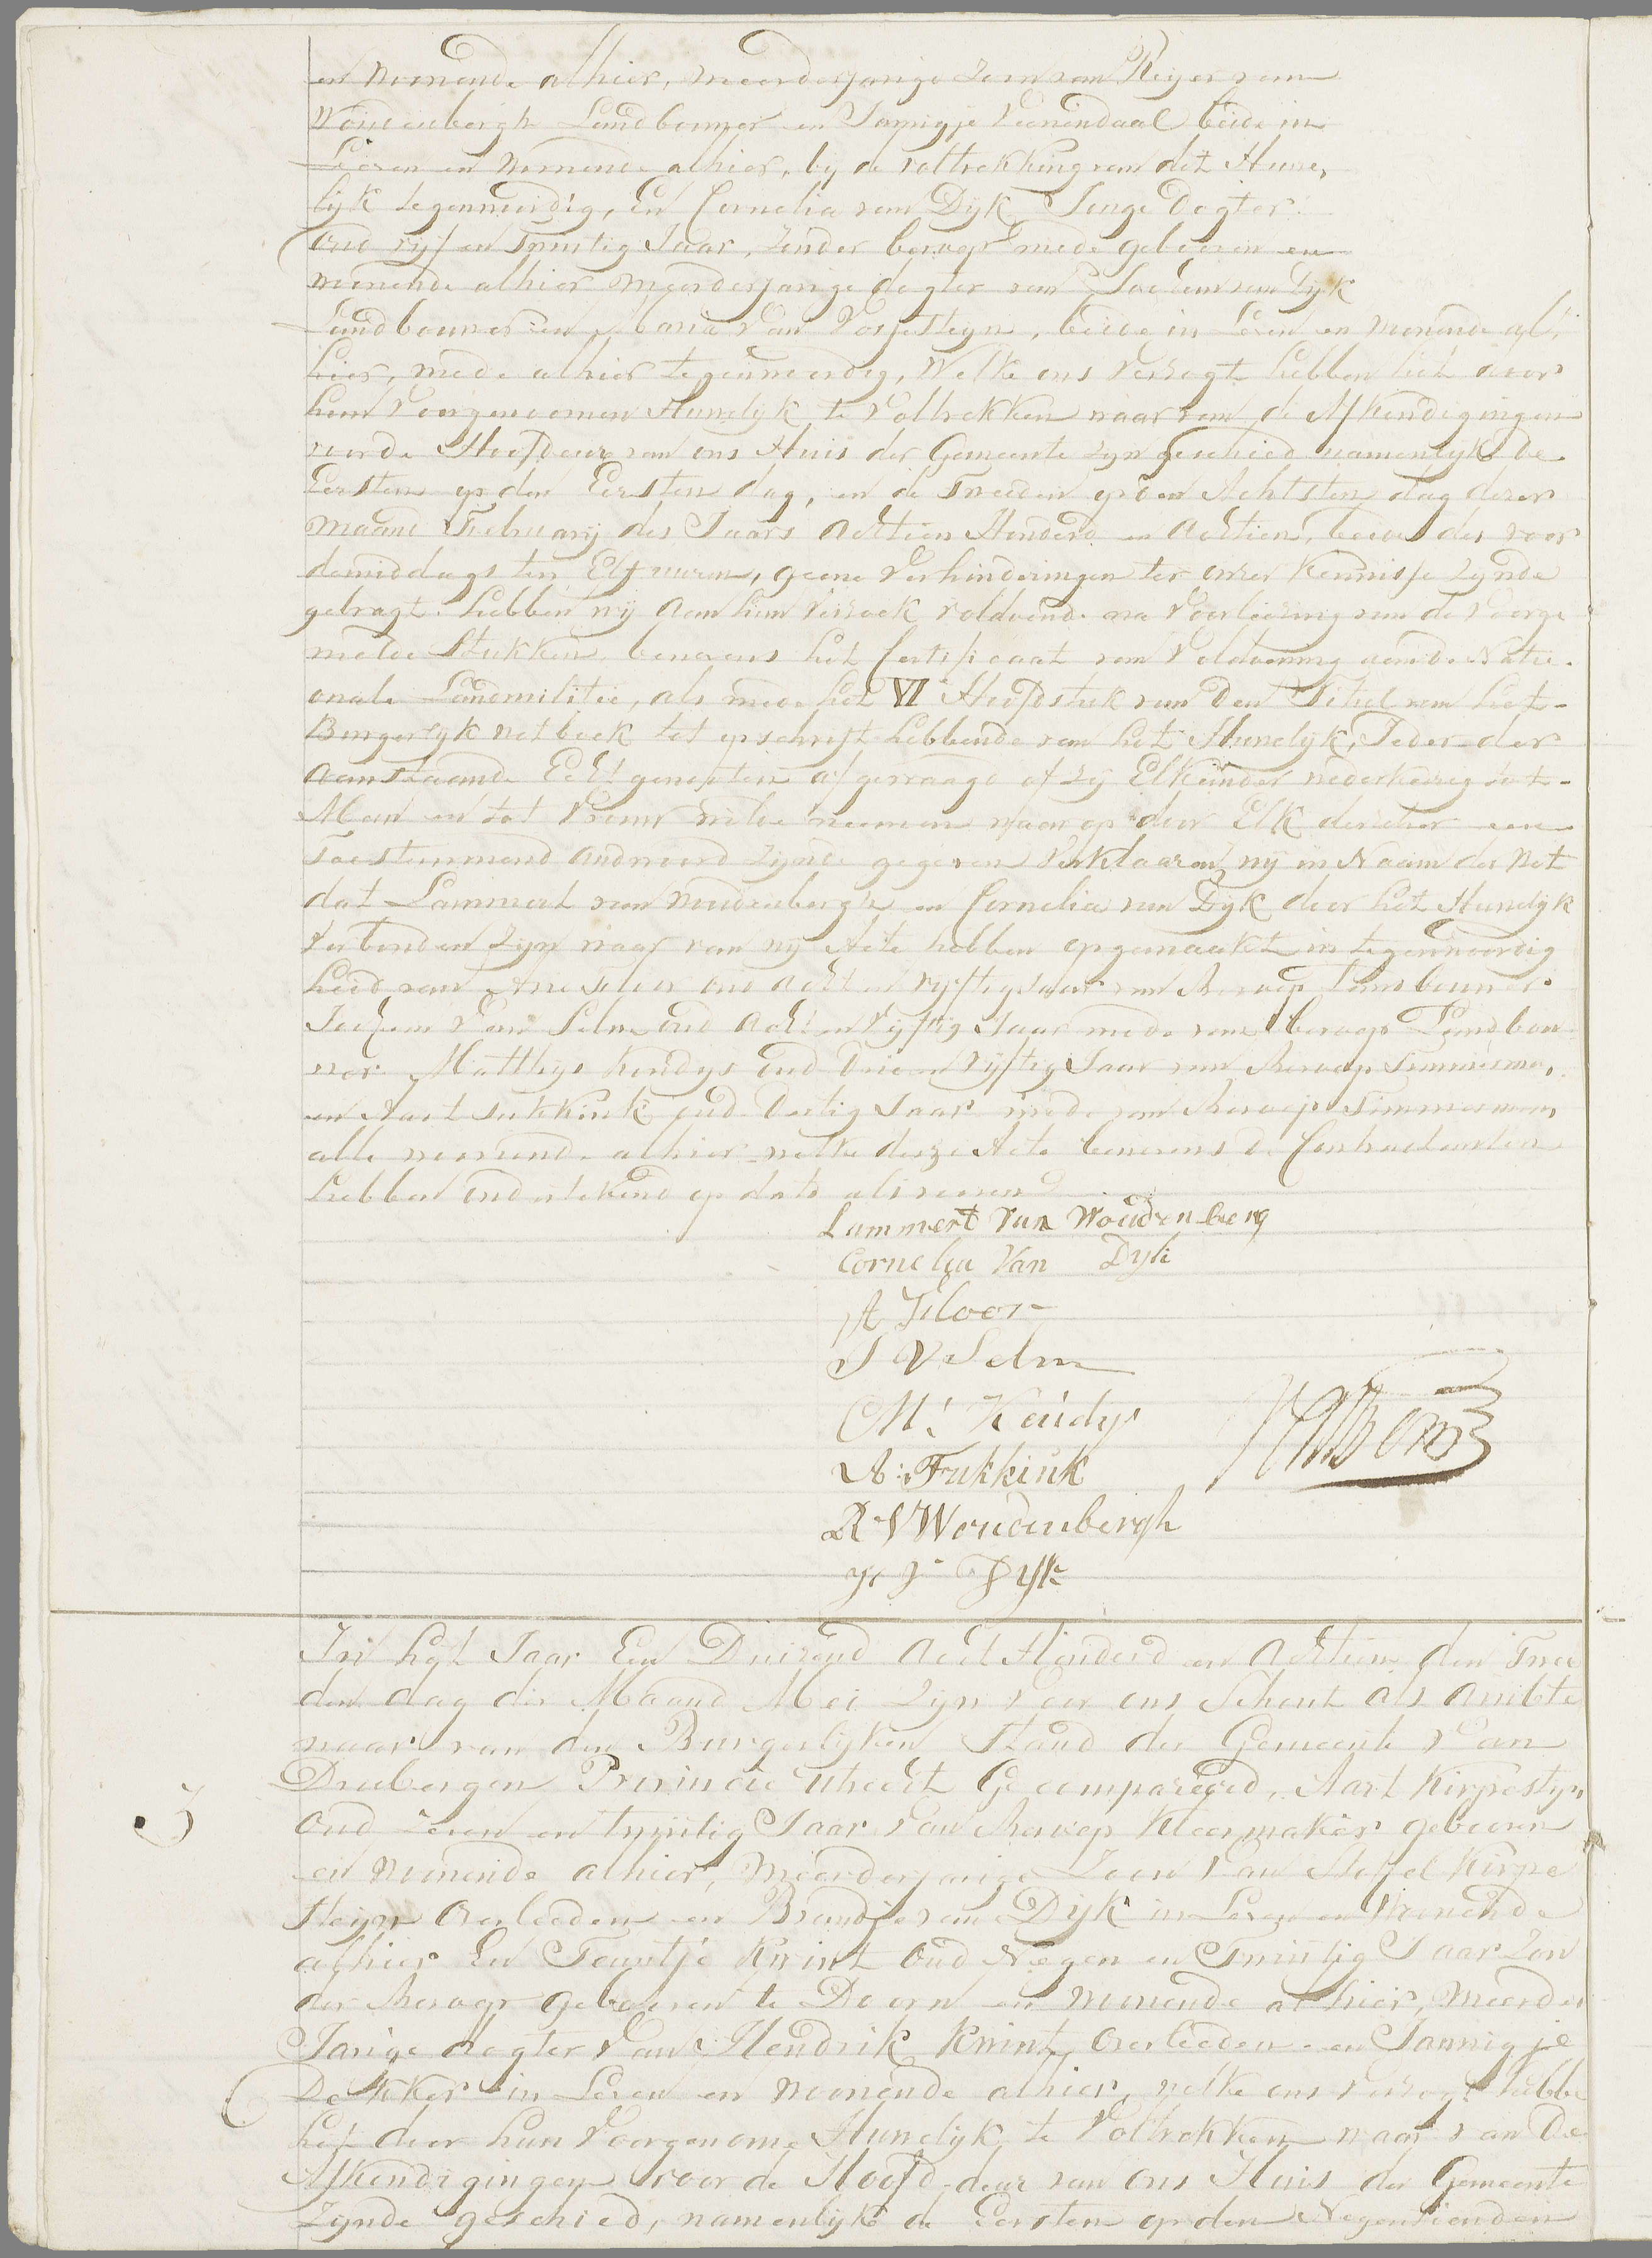 en Woonende alhier, meerderjarige Zoon van Reyer van
Woudenbergh Landbouwer en Jannigje Veenendaal beide in
Leeven en Woonende alhier, bij de voltrekking van dit Huwe,
lijk tegenwoordig, En Cornelia van Dijk Jonge Dogter
Oud vijf en Twintig Jaar, zonder beroep mede gebooren en
woonende alhier meerderjarige dogter van Jochem van Dijk
Landbouwer en Maria van Vosjesteyn, beide in Leven en Wonende al,,
hier, mede alhier tegenwoordig, Welke ons Verzogt hebben het door
hun Voorgenoomen Huwelijk te Voltrekken waar van de Afkondigingen
voor de Hoofdeur van ons Huis der Gemeente zijn geschied namentlijk de
Eersten op den Eersten dag, en de Tweeden op den Achtsten dag dezer
maand February des Jaars Achttien Honderd en Achtien, beide des voor
demiddags ten Elf uuren, geene Verhinderingen ter onzer kennisse zynde
gebragt. hebben wij aan hun Verzoek Voldoende na Voorleezing van de Voorge
melde Stukken benevens het Certificaat van Voldoening aan de Nati-
onale Landmilitie, als mede het VI Hoofdstuk van Den Titel van het
Burgerlijk Wetboek tot opschrift hebbende van het Huwelijk, Ieder der
aanstaande Echtgenooten afgevraagd of zij Elkander wederkeerig tot
Man en tot Vrouw wilde neemen waar op door Elk derzelver een
Toestemmend Andwoord zijnde gegeven Verklaaren wij in Naam der Wet
dat Lammert van Woudenbergh en Cornelia van Dijk door het Huwelijk
Verbonden Zijn waar van wij Acte hebben opgemaakt in tegenwoordig
heid van Arie Sloor oud Acht en vijftig Jaar van Beroep Landbouwer
Jochem van Selm oud Acht en Vijftig Jaar mede van beroep Landbou
wer Matthys Kendys Oud Drie en Vijftig Jaar van Beroep Timmerman,
en Aart Fukkink oud Dertig Jaar mede van Beroep Timmerman,
alle woonende alhier welke deeze Acte benevens de Contractanten
hebben Ondertekend op dato als boven
Lammert Van Woudenberg
Cornelia Van Dyk
A Sloor
J V Selm
M: Kendys
A: Fukkink
R V Woudenbergh
In het Jaar Een Duizend Acht Honderd en Achtien den Twee
den dag der Maand Mei Zijn voor ons Schout als Ambte
naar van den Burgerlijken Stand der Gemeente van
Driebergen Provincie Utrecht Gecompareerd, Aart Kirpestyn
3
Oud Zeven en twintig Jaar van Beroep Kleermaker gebooren
en woonende alhier, Meerderjarige Zoon van Stoffel Kirpe
steyn Overleeden en Brandje van Dijk in Leven en Woonende
alhier En Teuntje Kwint Oud Negen en Twintig Jaar Zon
der Beroep gebooren te Doorn en wonende alhier, Meerder
Jarige dogter van Hendrik Kwint Overleeden en Jannigje
Dekker in Leven en Woonende alhier, welke ons verzogt hebbe
het door hun Voorgenome Huwelijk te Voltrekken waar van De
Afkondigingen voor de Hoofd-deur van Ons Huis der Gemeente
Zijnde geschied, namenlijk de Eersten op den Negentienden